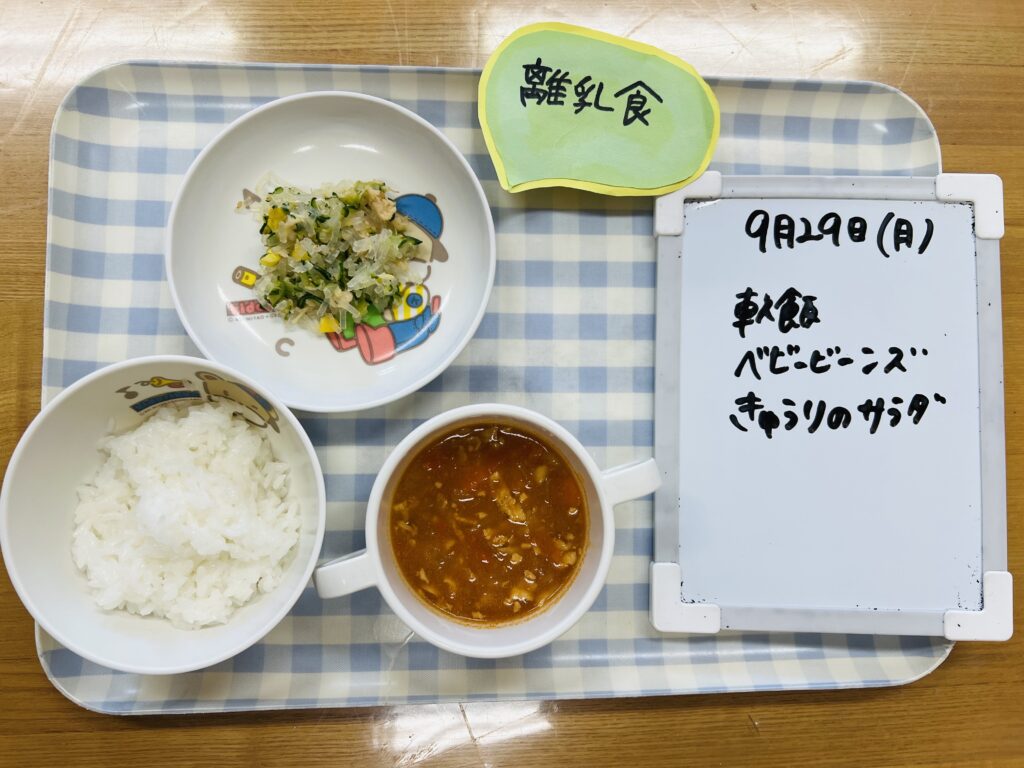 離乳食
9月29日(月)
軟飯
ベビービーンズ
きゅうりのサラダ